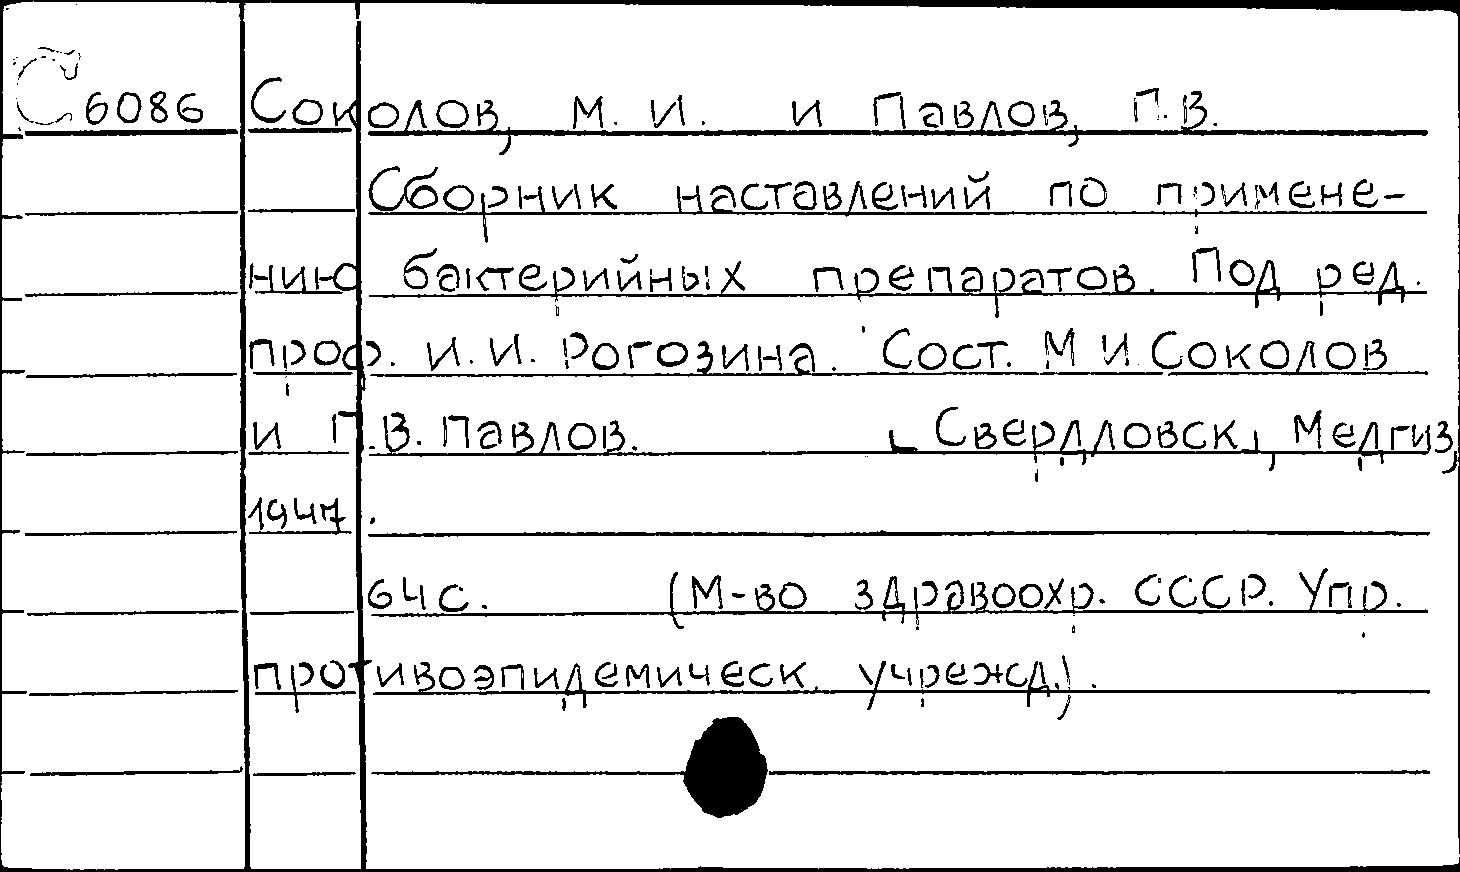 С6086 Соколов, М. И. и Павлов, П.В.
Сборник наставлений по примене-
нию бактерийных препаратов. Под ред.
проф. И.И. Рогозина. Сост. М И Соколов
и П.В. Павлов. [Свердловск], Медгиз,
1947.
64с. (М-во здравоохр. СССР. Упр.
противоэпидемическ. учрежд.).